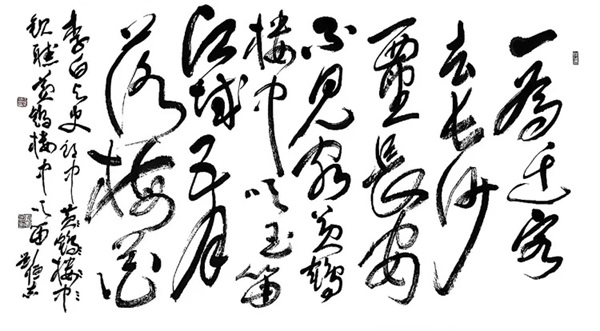 一為迁客
去长沙
西望長安
不見家黄鹤
楼中吹玉笛
江城五月
落梅花
李白与史郎中黄鹤楼中
钦聽黄鹤楼中吹笛